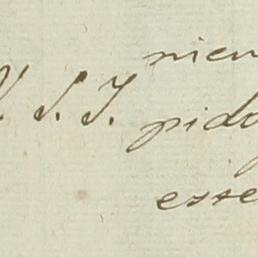 nien
V. S. I. pido
este